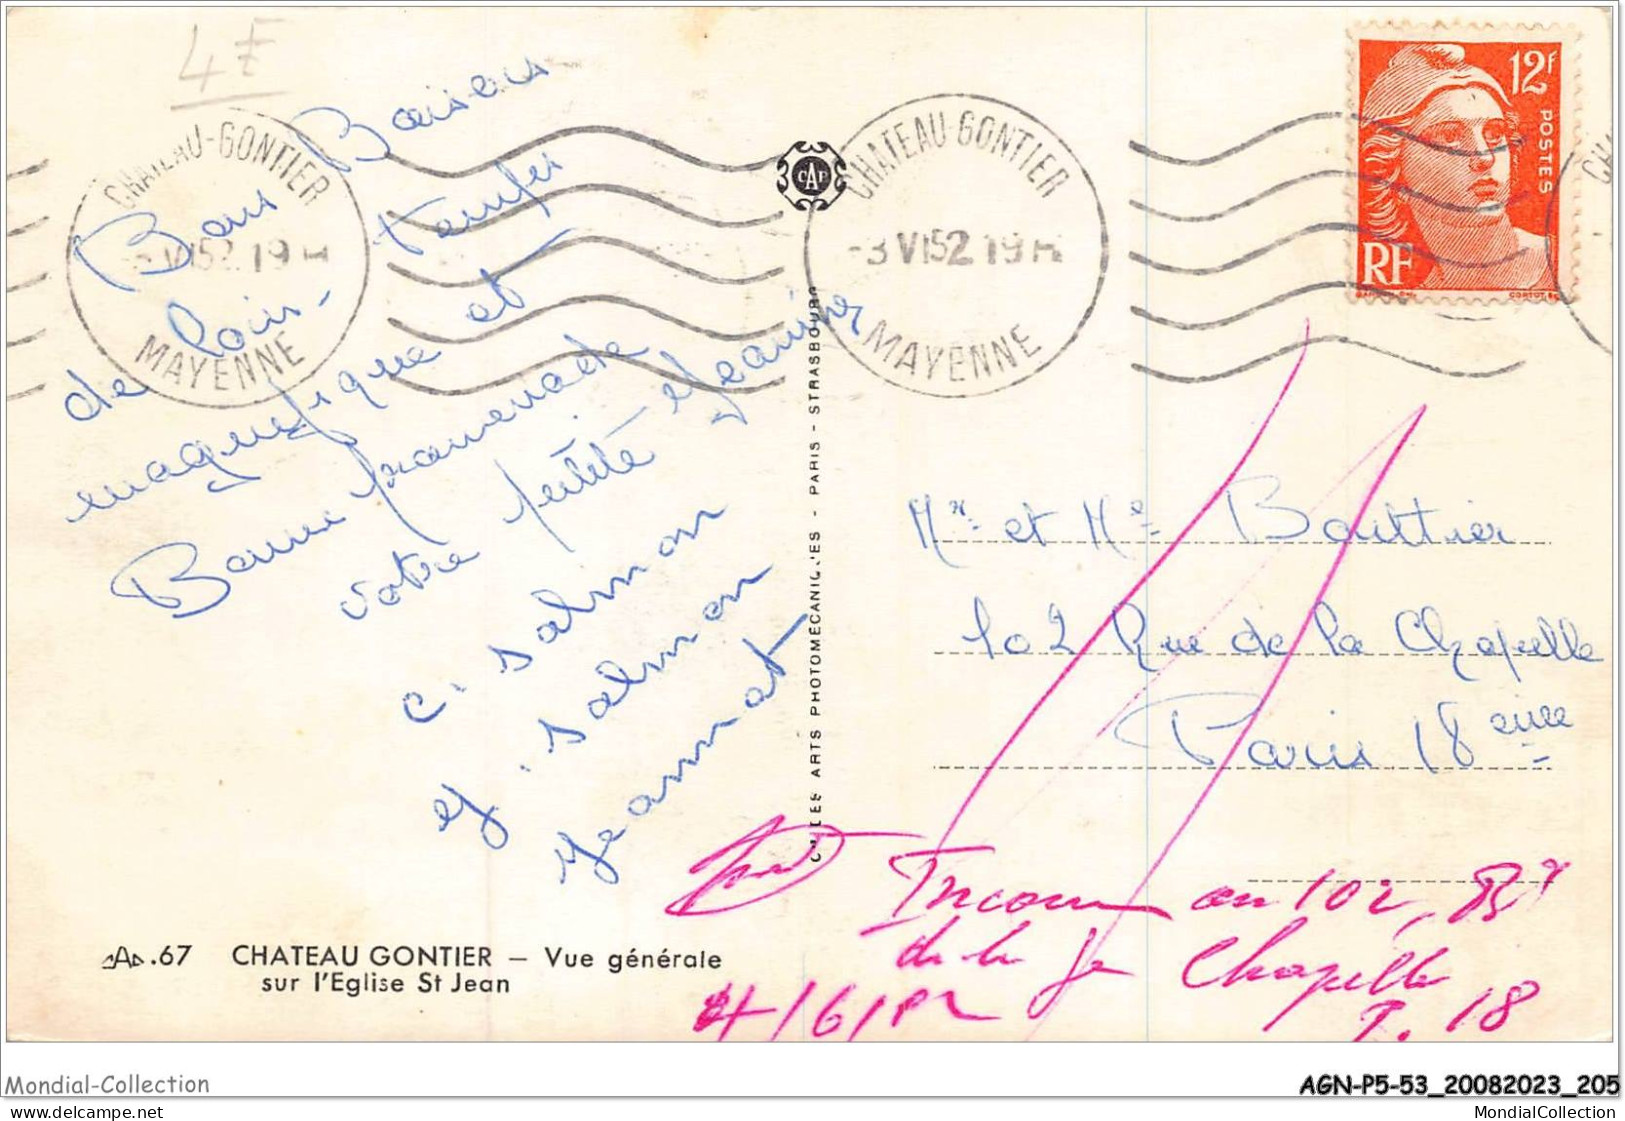 4€
CHATEAU-GONTIER
VI52 19H
MAYENNE
CHATEAU-GONTIER
-3 VI52 19H
MAYENNE
12F
POSTES
RF
CAP
Bons Baisers
de loin -
temps
magnifique et
Bonne promenade
votre petite Jeanine
C. Salmon
Y. Salmon
Jeannot
ARTS PHOTOMÉCANIQUES - PARIS - STRASBOURG
Mr et Me Bouttier
102 Rue de la Chapelle
Paris 18eme
Inconnu au 102, Bd
de la Chapelle
4/6/52 P. 18
.67 CHATEAU GONTIER – Vue générale
sur l'Eglise St Jean
Mondial-Collection
delcampe.net
AGN-P5-53_20082023_205
MondialCollection